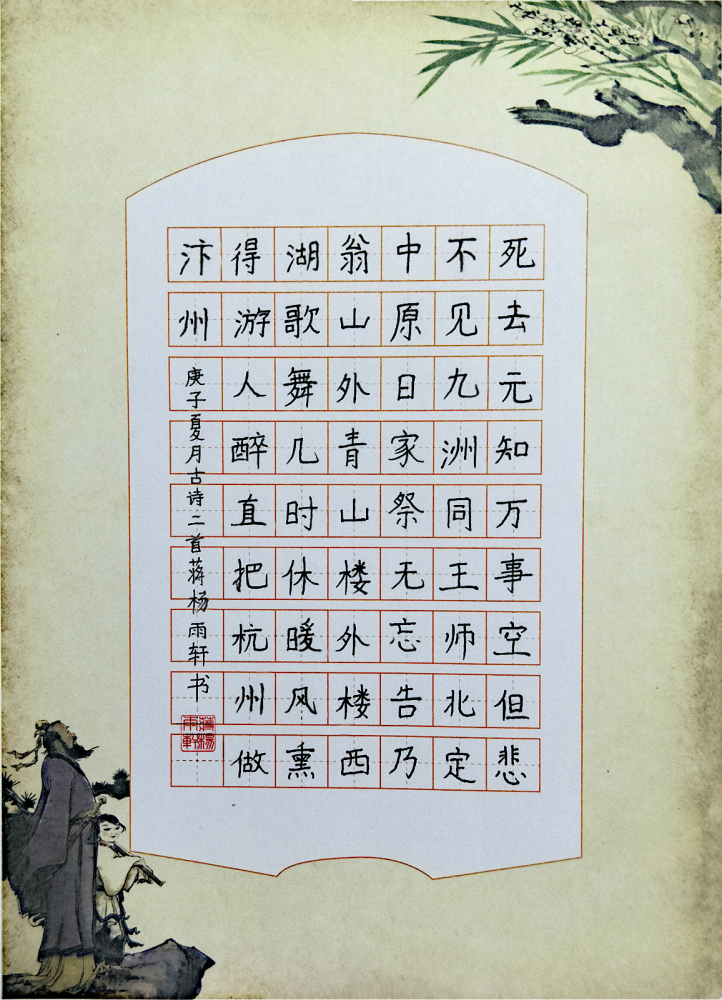 死去元知万事空但悲
不见九洲同王师北定
中原日家祭无忘告乃
翁山外青山楼外楼西
湖歌舞几时休暖风熏
得游人醉直把杭州做
汴州
庚子夏月古诗二首蒋杨雨轩书
蒋杨雨軒